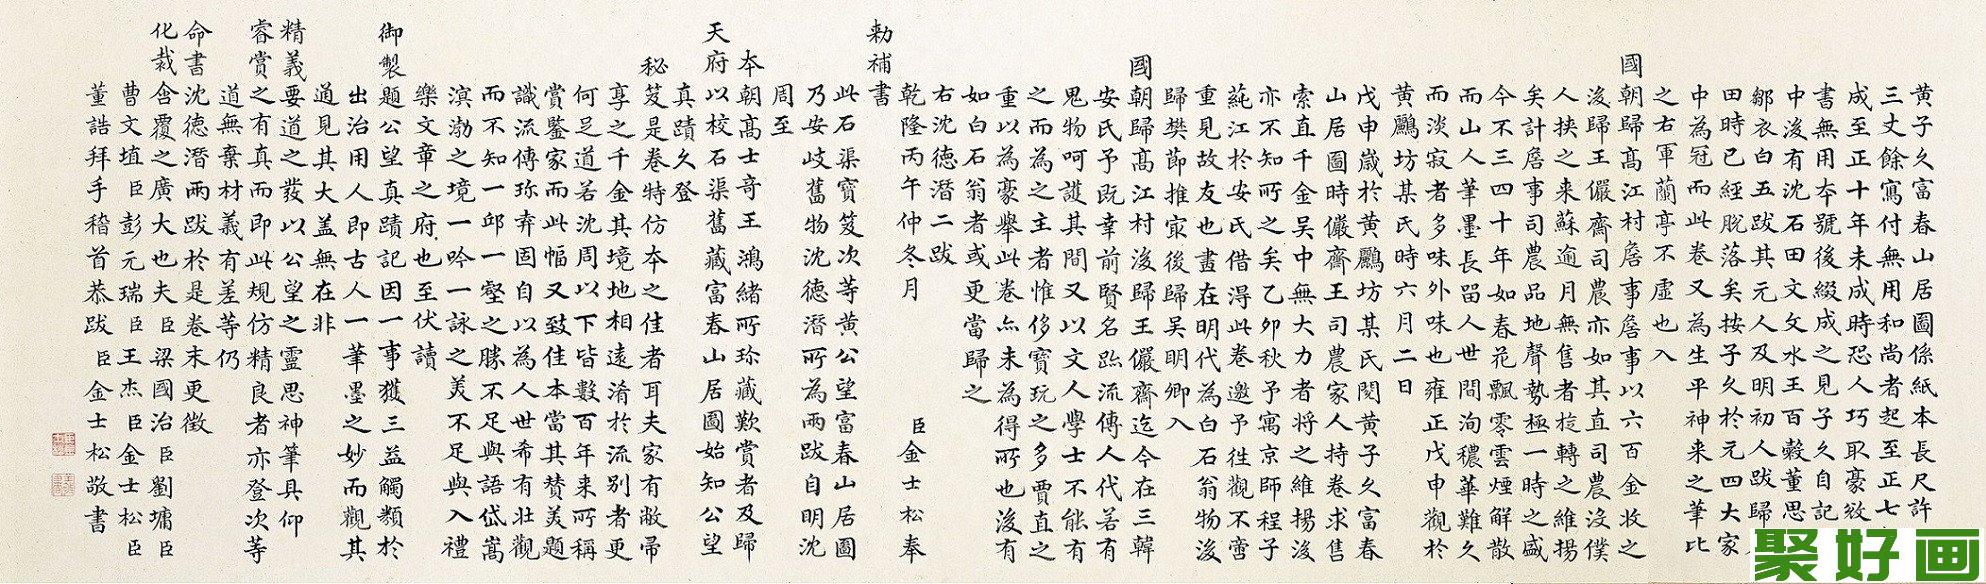 黄子久富春山居圖係紙本長尺許
三丈餘寫付無用和尚者起至正七
成至正十年未成時恐人巧取豪敚
書無用本號後綴成之見子久自記
中後有沈石田文文水王百穀董思
鄒衣白五跋其元人及明初人跋歸
田時已經脫落矣按子久於元四大家
中為冠而此卷又為生平神来之筆比
之右軍蘭亭不虛也入
國朝歸髙江村詹事詹事以六百金收之
後歸王儼齋司農亦如其直司農沒僕
人挟之来蘇逾月無售者庋轉之維揚
矣計詹事司農品地聲勢極一時之盛
今不三四十年如春花飄零雲煙解散
而山人筆墨長留人世間洵穠華難久
而淡寂者多味外味也雍正戊申觀於
黄鸝坊某氏時六月二日
戊申歲於黄鸝坊某氏閱黄子久富春
山居圖時儼齊王司農家人持卷求售
索直千金吴中無大力者將之維揚後
亦不知所之矣乙夘秋予寓京師程子
蒓江於安氏借得此卷邀予徃觀不啻
重見故友也畫在明代為白石翁物後
歸樊節推㝡後歸吴明卿入
國朝歸髙江村後歸王儼齋迄今在三韓
安氏予既幸前賢名跡流傳人代若有
鬼物呵護其間又以文人學士不能有
之而為之主者惟侈寶玩之多賈直之
重以為豪舉此卷亦未為得所也後有
如白石翁者或更當歸之
右沈德潛二跋
乾隆丙午仲冬月 臣金士松奉
勅補書
此石渠寶笈次等黄公望富春山居圖
乃安岐舊物沈德潛所為兩跋自明沈
周至
本朝髙士竒王鴻緒所珎藏歎賞者及歸
天府以校石渠舊藏富春山居圖始知公望
真蹟久登
秘笈是卷特仿本之佳者耳夫家有敝帚
享之千金其境地相遠淆於流别者更
何足道若沈周以下皆數百年来所稱
賞鑒家而此幅又致佳本當其赞美題
識流傳珎弆固自以為人世希有壮觀
而不知一邱一壑之勝不足與語岱嵩
滇渤之境一吟一詠之美不足與入禮
樂文章之府也至伏讀
御製題公望真蹟記因一事獲三益觸類於
出治用人即古人一筆墨之妙而觀其
通見其大盖無在非
精義要道之發以公望之靈思神筆具仰
睿賞之有真而即此規仿精良者亦登次等
道無棄材義有差等仍
命書沈德潛兩跋於是卷末更徵
化裁含覆之廣大也夫臣梁國治臣劉墉臣
曹文埴臣彭元瑞臣王杰臣金士松臣
董誥拜手稽首恭跋 臣金士松敬書
聚好画